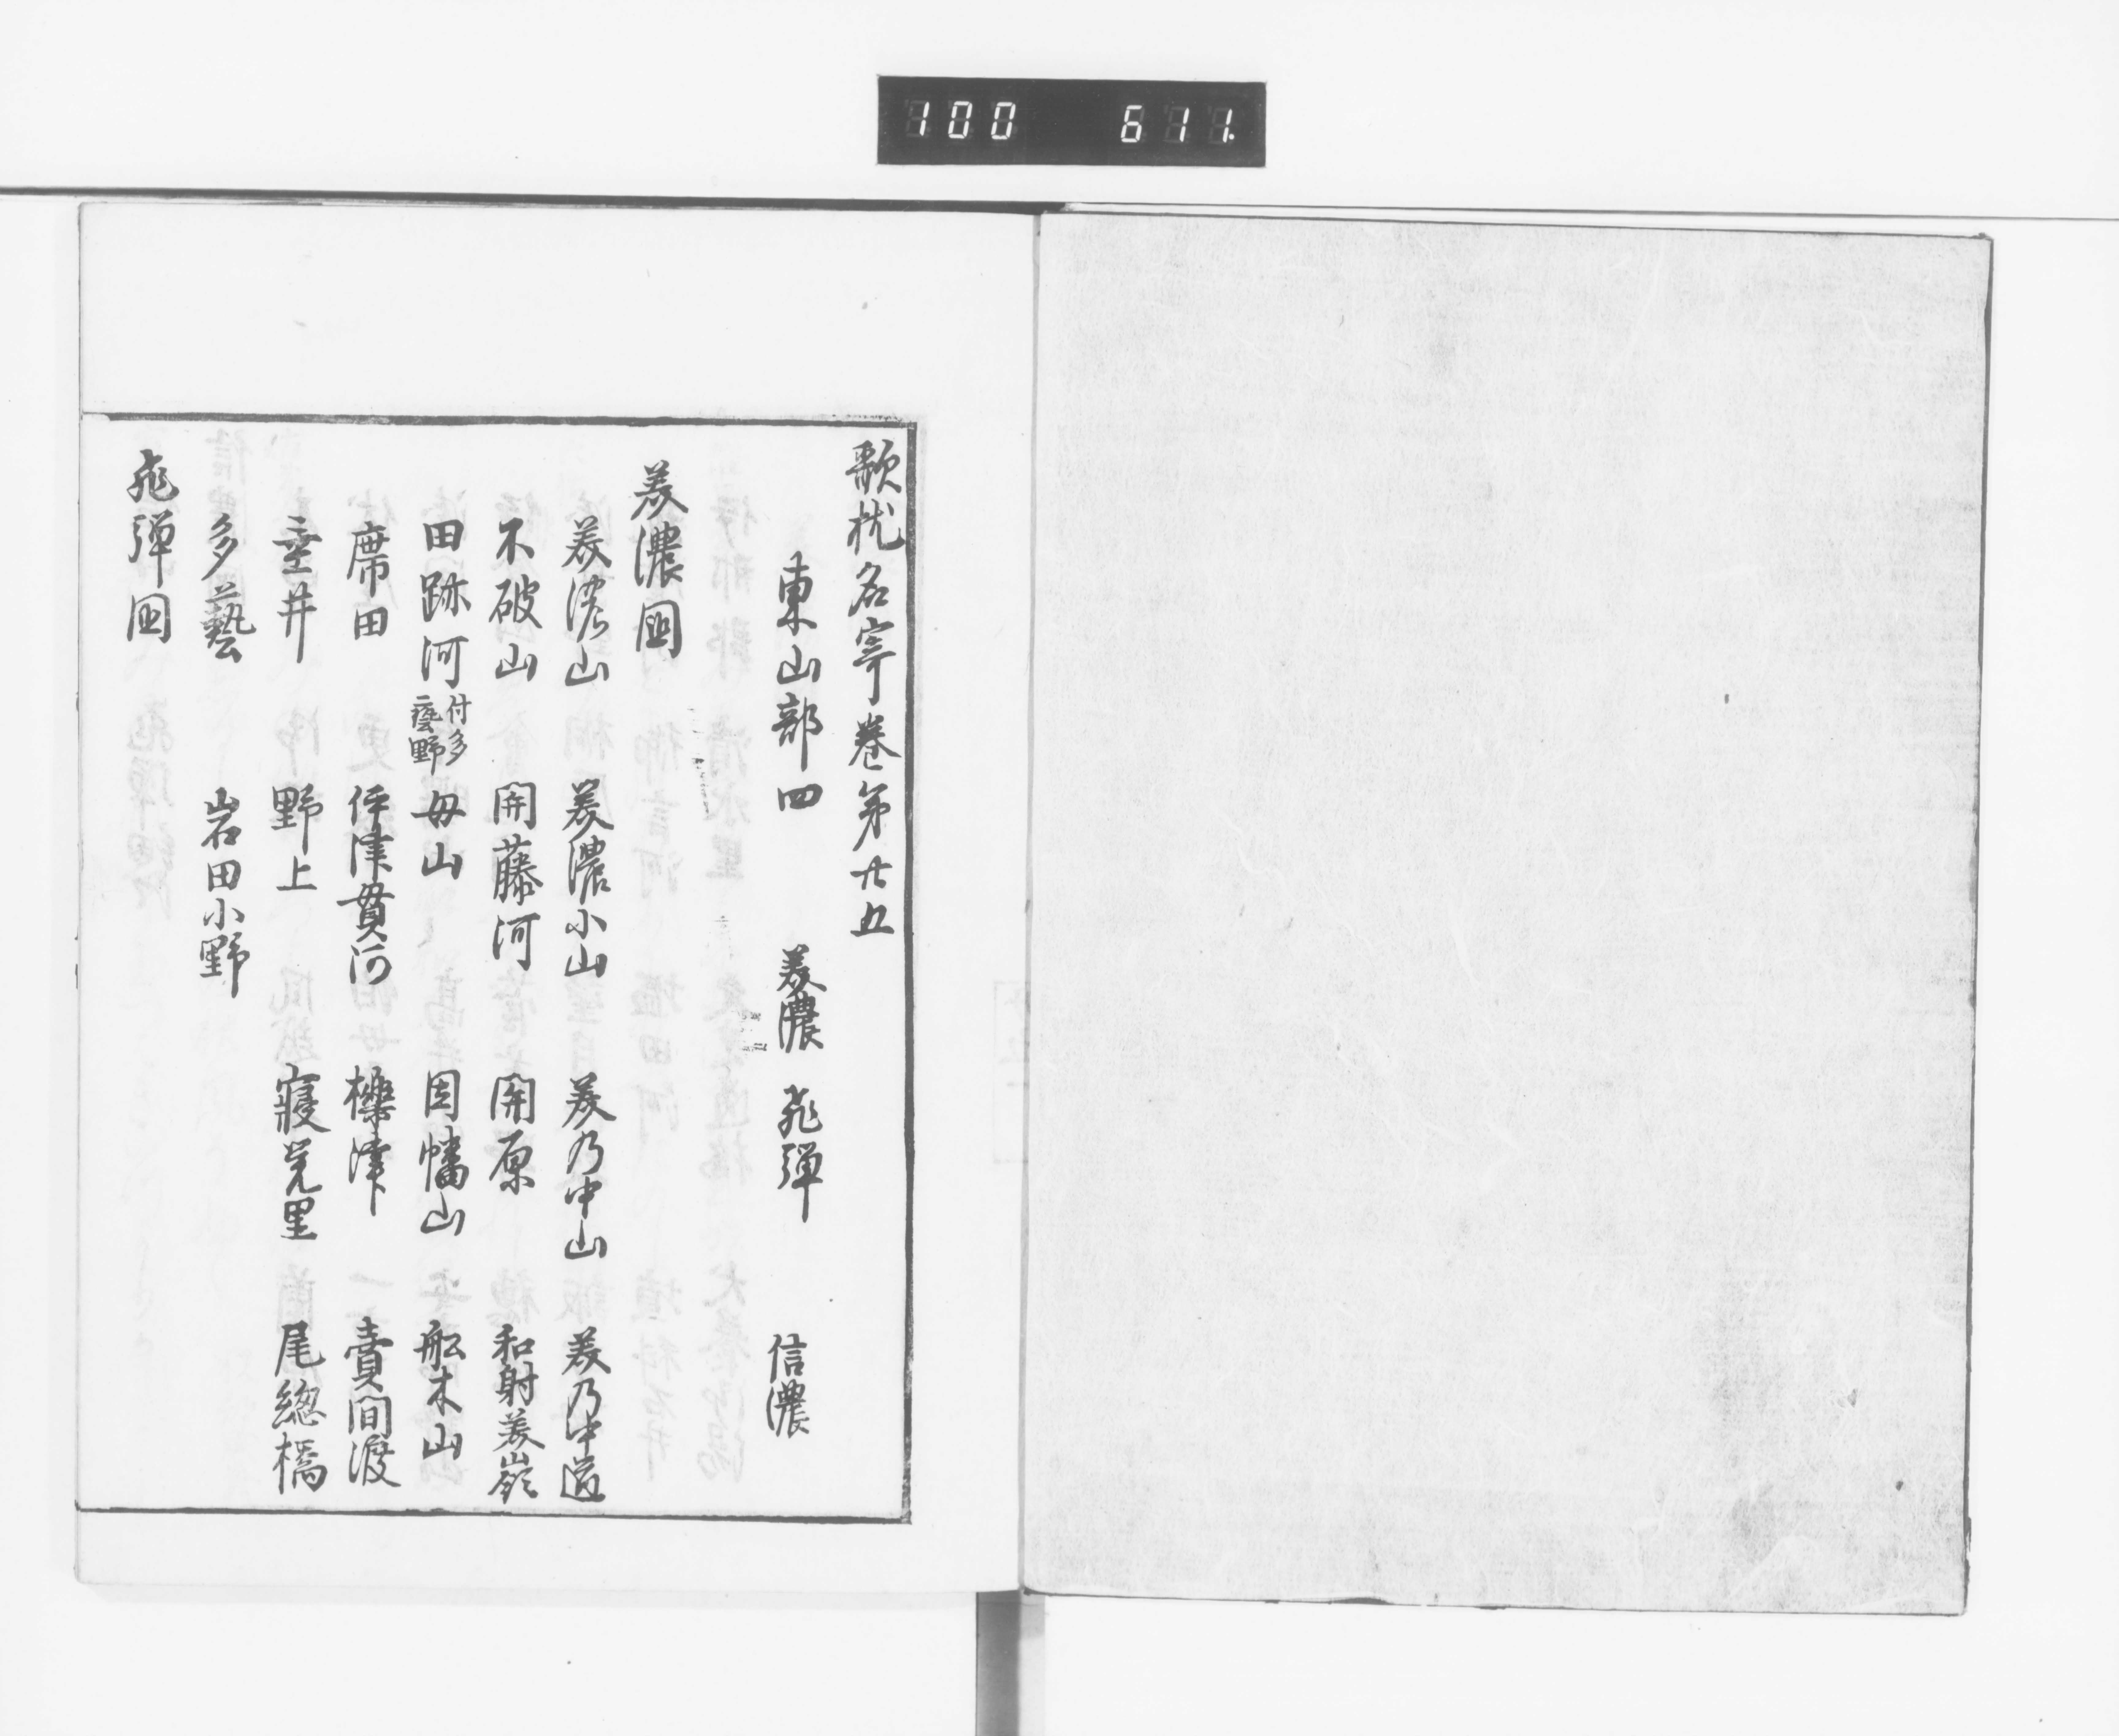 100 611.
歌枕名寄卷第廿五
東山部四 美濃 飛彈 信濃
美濃国
美濃山 美濃小山 美乃中山 美乃中道
不破山 関藤河 関原 和射美嶺
田跡河 付多藝野 母山 因幡山 舩木山
席田 伊津貫河 櫟津 賣間渡
垂井 野上 寢覚里 尾総橋
多藝 岩田小野
飛彈国